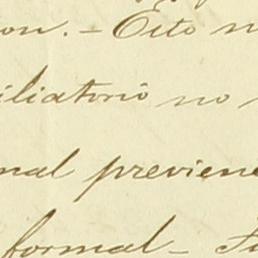 on. - Esto n
iliatorio no
nal previene
formal - Fu